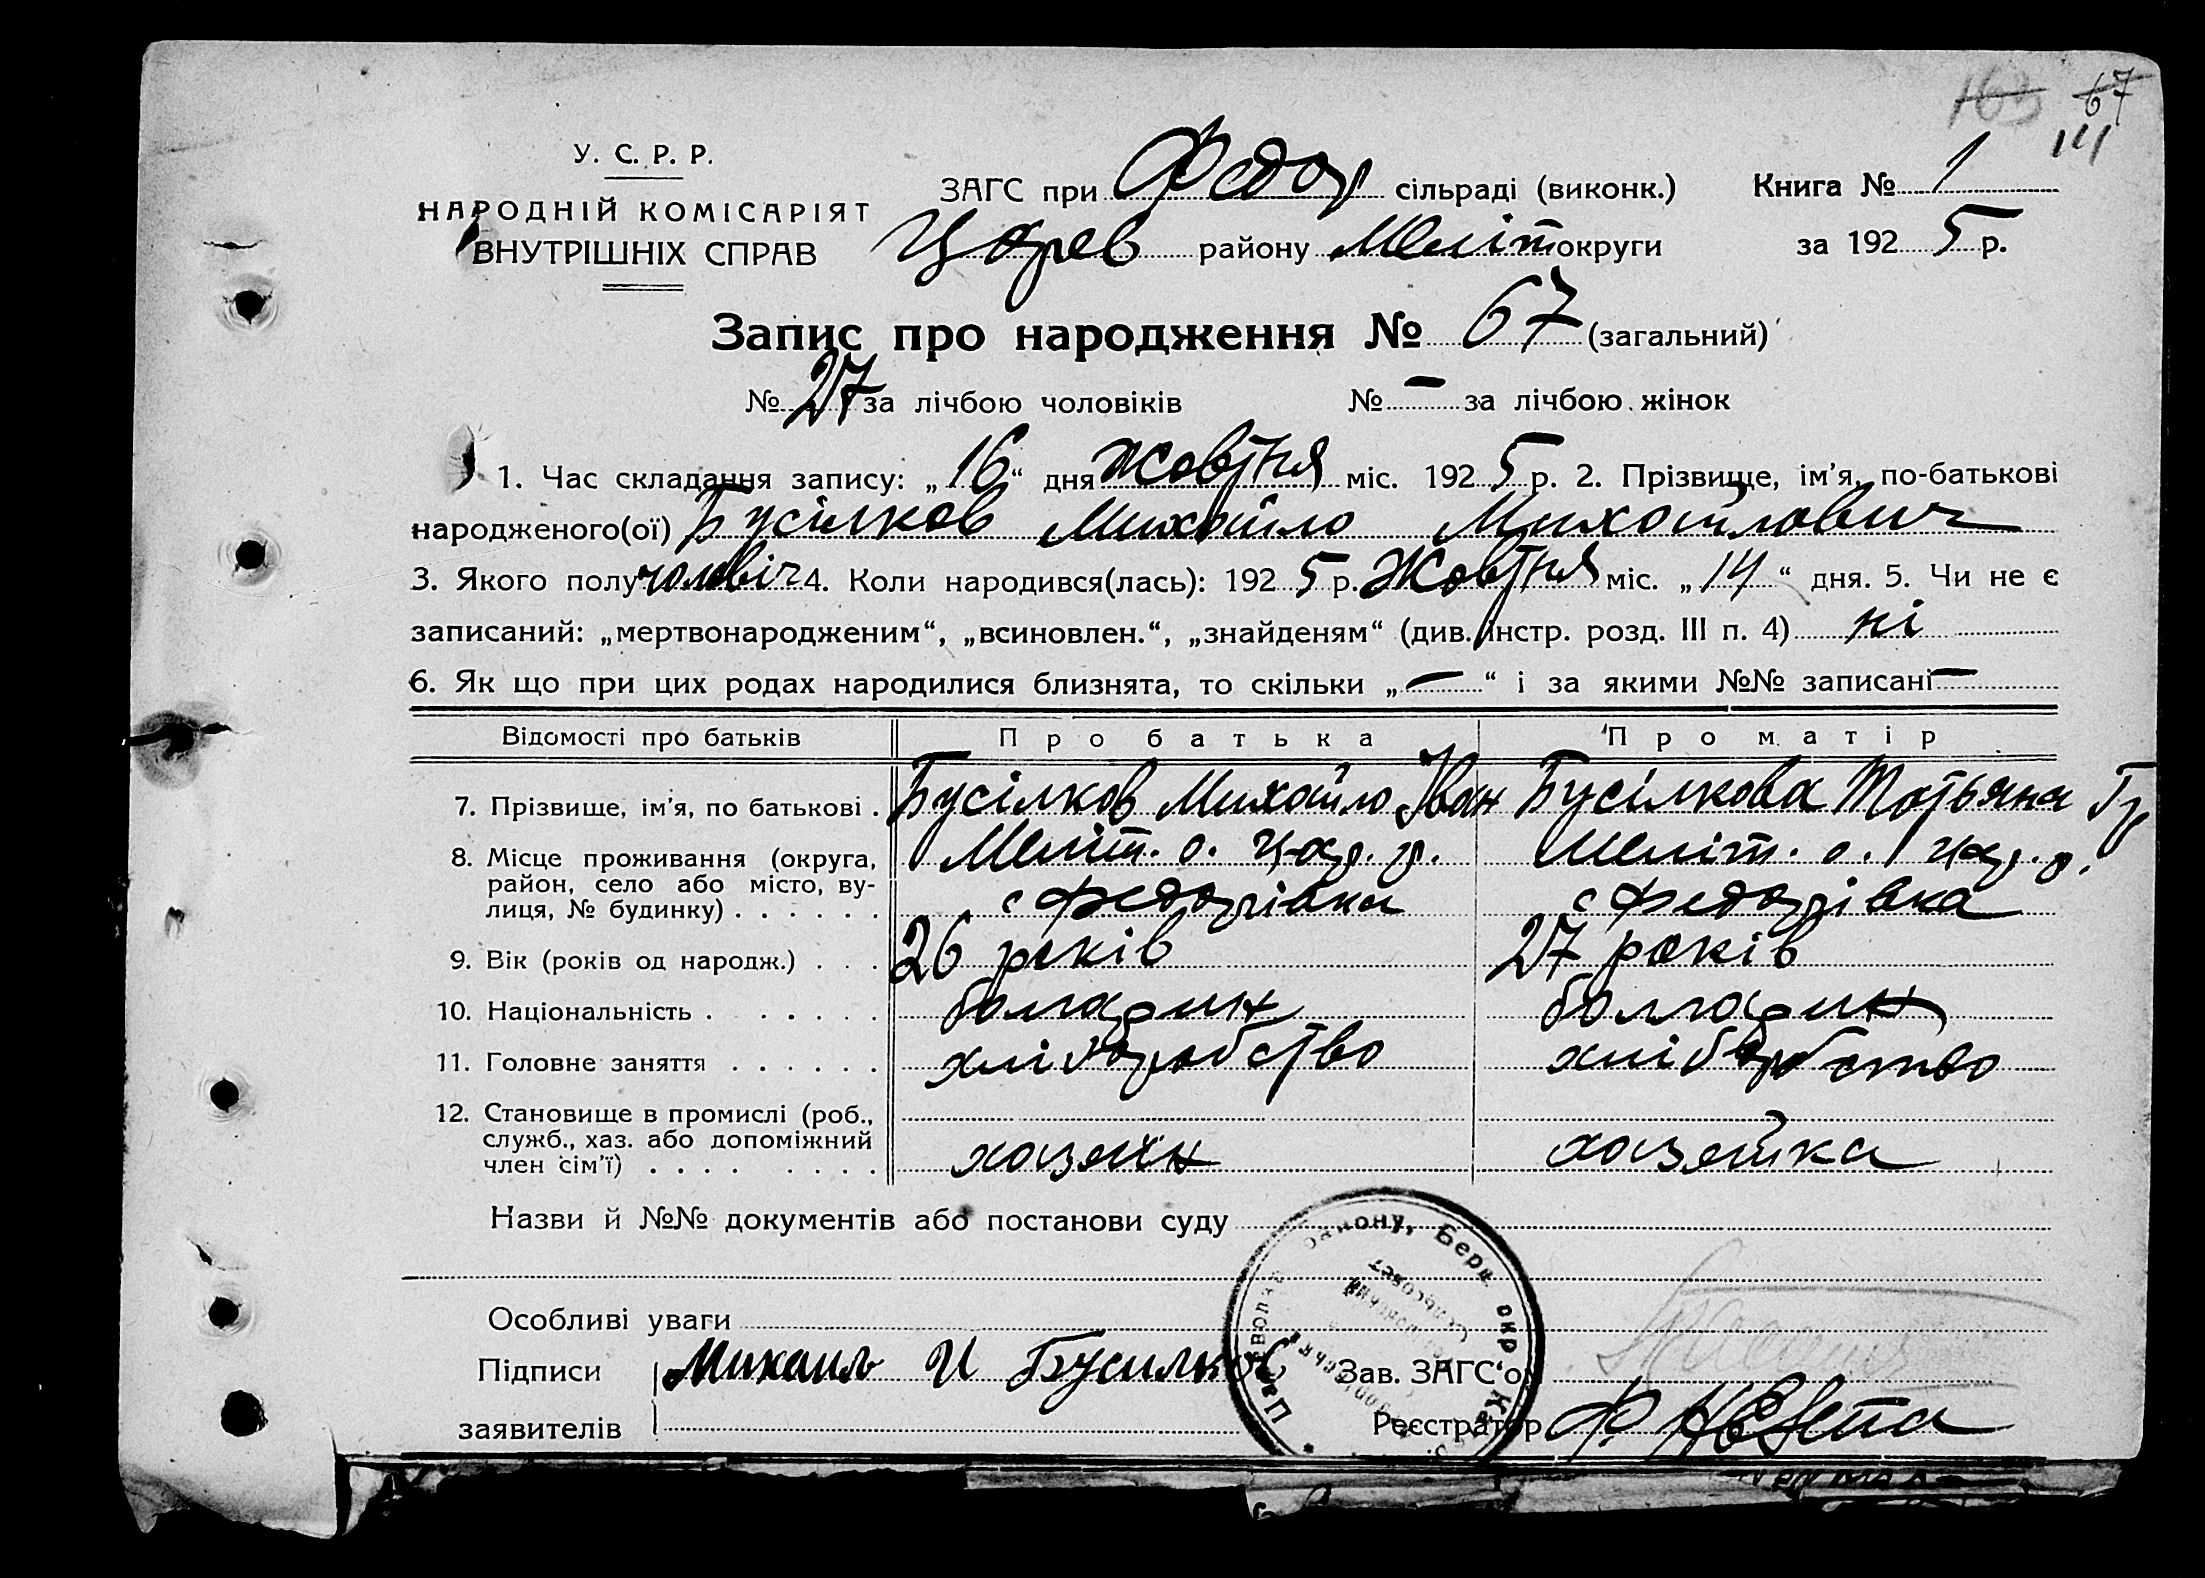 163 67
111
У. С. Р. Р.
НАРОДНІЙ КОМІСАРІЯТ
ВНУТРІШНІХ СПРАВ
ЗАГС при Федор сільраді (виконк.) Книга № 1
Царев району Меліт округи за 192 5 р.
Запис про народження № 67 (загальний)
№ 27 за лічбою чоловіків № — за лічбою жінок
1. Час складання запису: „16“ дня жовтня міс. 192 5 р. 2. Прізвище, ім'я, по-батькові
народженого(ої) Бусілков Михайло Михайлович
3. Якого полу чоловіч 4. Коли народився(лась): 192 5 р. Жовтня міс. „14“ дня. 5. Чи не є
записаний: „мертвонародженим“, „всиновлен.“, „знайденям“ (див. інстр. розд. III п. 4) ні
6. Як що при цих родах народилися близнята, то скільки „—“ і за якими №№ записані —
Відомості про батьків Про батька Про матір
7. Прізвище, ім'я, по батькові . Бусілков Михайло Іван Бусілкова Татьяна Гр
8. Місце проживання (округа, Меліт. о. Цар. р. Меліт. о. Цар. р.
район, село або місто, ву-
лиця, № будинку) . . . . . . с Федорівка с Федорівка
9. Вік (років од народж.) . . . 26 років 27 років
10. Національність . . . . . . болгарин болгарин
11. Головне заняття . . . . . . хліборобство хліборобство
12. Становище в промислі (роб.,
служб., хаз. або допоміжний
член сім'ї) . . . . . . . . хазяїн хазяйка
Назви й №№ документів або постанови суду
району, Берд. окр
Сельсовет
Особливі уваги
Підписи Михаил И Бусилков Зав. ЗАГС'ом
заявителів Реєстратор Ф.